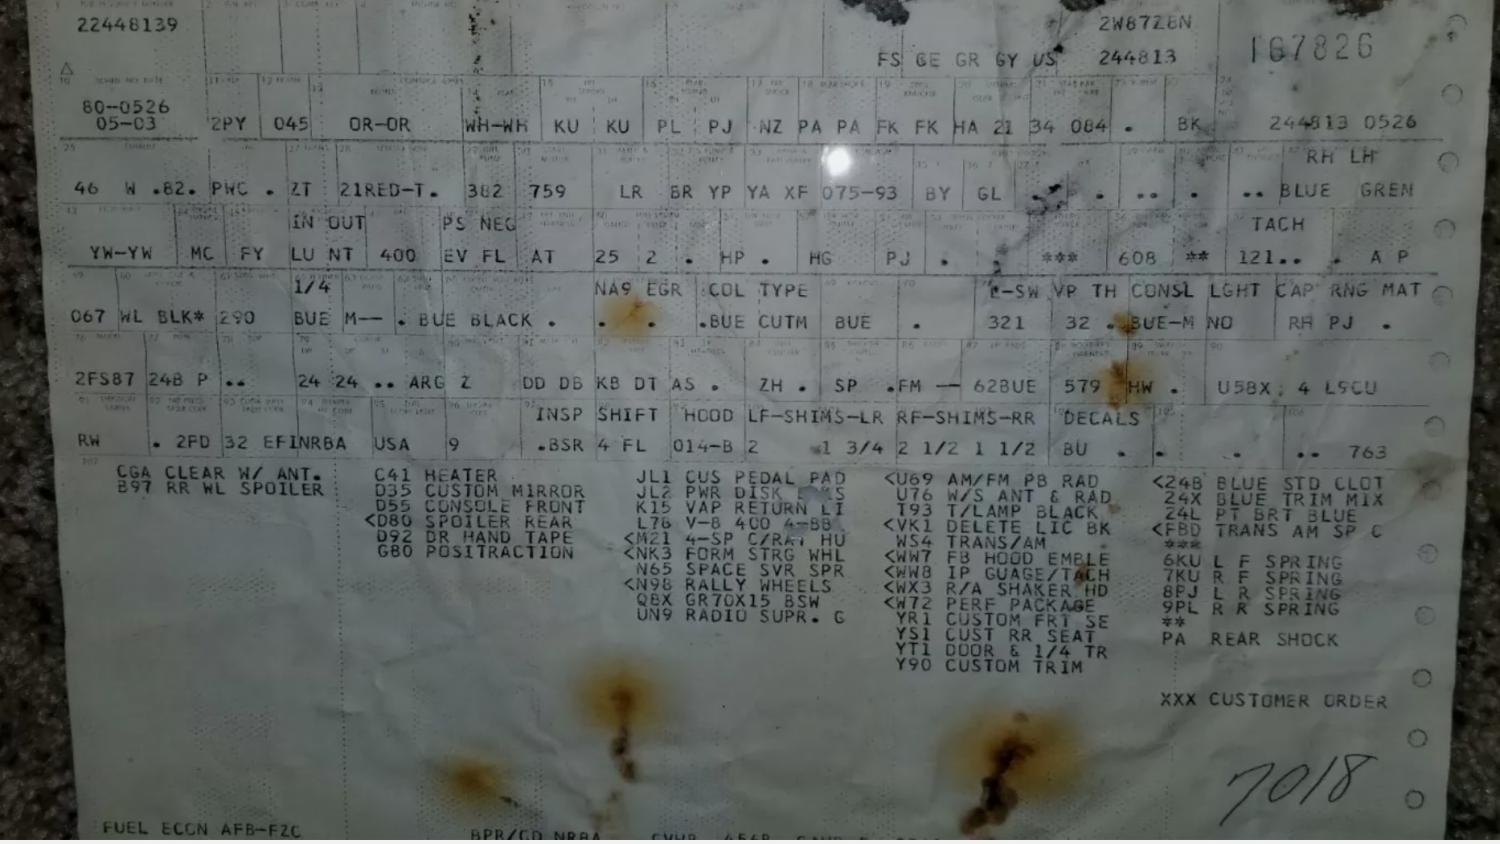 22448139 2W87Z8N 167826
FS GE GR GY US 244813
80-0526
05-03 2PY 045 OR-OR WH-WH KU KU PL PJ NZ PA PA FK FK HA 21 34 084 . BK 244813 0526
RH LH
46 W .82. PWC . ZT 21RED-T. 382 759 LR BR YP YA XF 075-93 BY GL . . .. . .. BLUE GREN
IN OUT PS NEG TACH
YW-YW MC FY LU NT 400 EV FL AT 25 2 . HP . HG PJ . . *** 608 ** 121.. . A P
1/4 NA9 EGR COL TYPE -SW VP TH CONSL LGHT CAP RNG MAT
067 WL BLK* 290 BUE M-- . BUE BLACK . . . .BUE CUTM BUE . 321 32 . BUE-M NO RH PJ .
2FS87 24B P .. 24 24 .. ARG Z DD DB KB DT AS . ZH . SP .FM -- 62BUE 579 HW . U58X 4 L9CU
INSP SHIFT HOOD LF-SHIMS-LR RF-SHIMS-RR DECALS
RW . 2FD 32 EFINRBA USA 9 .BSR 4 FL 014-B 2 1 3/4 2 1/2 1 1/2 BU . . . .. 763
CGA CLEAR W/ ANT.
B97 RR WL SPOILER
C41 HEATER
D35 CUSTOM MIRROR
D55 CONSOLE FRONT
<D80 SPOILER REAR
D92 DR HAND TAPE
G80 POSITRACTION
JL1 CUS PEDAL PAD
JL2 PWR DISK
K15 VAP RETURN LI
L78 V-8 400 4-BB
<M21 4-SP C/RAT HU
<NK3 FORM STRG WHL
N65 SPACE SVR SPR
<N98 RALLY WHEELS
QBX GR70X15 BSW
UN9 RADIO SUPR. G
<U69 AM/FM PB RAD
U76 W/S ANT & RAD
T93 T/LAMP BLACK
<VK1 DELETE LIC BK
WS4 TRANS/AM
<WW7 FB HOOD EMBLE
<WW8 IP GUAGE/TACH
<WX3 R/A SHAKER HD
<W72 PERF PACKAGE
YR1 CUSTOM FRT SE
YS1 CUST RR SEAT
YT1 DOOR & 1/4 TR
Y90 CUSTOM TRIM
<24B BLUE STD CLOT
24X BLUE TRIM MIX
24L PT BRT BLUE
<FBD TRANS AM SP C
***
6KU L F SPRING
7KU R F SPRING
8PJ L R SPRING
9PL R R SPRING
**
PA REAR SHOCK
XXX CUSTOMER ORDER
7018
FUEL ECON AFB-FZC BPR/GD NRBA